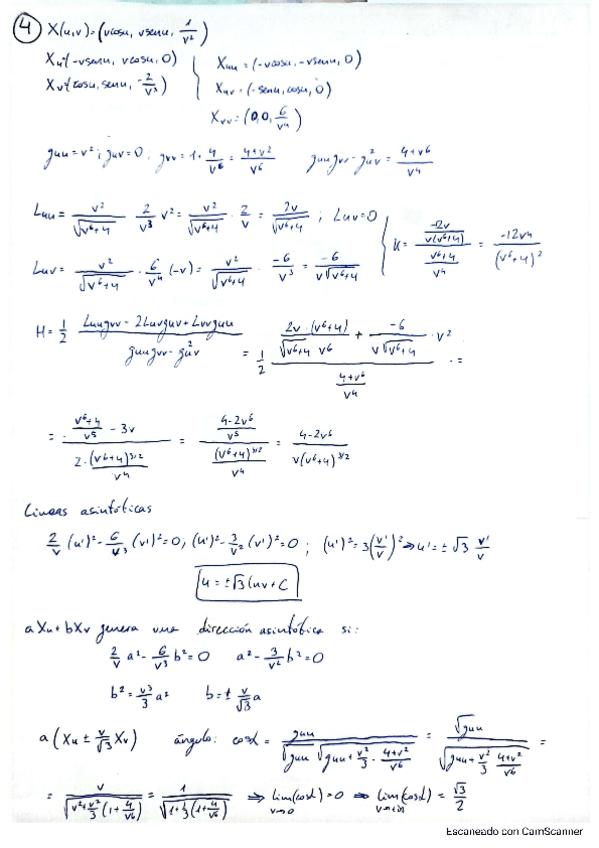 ④ X(u,v)=(vcosu, vsenu, 1/v²)
Xu=(-vsenu, vcosu, 0) Xuu=(-vcosu, -vsenu, 0)
Xv=(cosu, senu, -2/v³) Xuv=(-senu, cosu, 0)
Xvv=(0,0, 6/v⁴)
guu=v²; guv=0; gvv=1+4/v⁶=(4+v²)/v⁶ guugvv-g²uv=(4+v⁶)/v⁴
Luu=v²/√(v⁶+4) 2/v³ v²=v²/√(v⁶+4)·2/v=2v/√(v⁶+4); Luv=0
K=(-12v/(v(v⁶+4)))/((v⁶+4)/v⁴)=-12v⁴/(v⁶+4)²
Luv=v²/√(v⁶+4)·6/v⁴(-v)=v²/√(v⁶+4)·-6/v³=-6/(v√(v⁶+4))
H=1/2 (Luugvv-2Luvguv+Lvvguu)/(guugvv-g²uv)=1/2 (2v·(v⁶+4)/(√(v⁶+4) v⁶)+-6/(v√(v⁶+4))·v²)/((4+v⁶)/v⁴)·=
=((v⁶+4)/v⁵-3v)/(2·(v⁶+4)^(3/2)/v⁴)=((4-2v⁶)/v⁵)/((v⁶+4)^(3/2)/v⁴)=(4-2v⁶)/(v(v⁶+4)^(3/2))
Lineas asintóticas
2/v(u')²-6/v³(v')²=0; (u')²-3/v²(v')²=0; (u')²=3(v'/v)²⇒u'=±√3 v'/v
u=±√3lnv+C
aXu+bXv genera una dirección asintótica si:
2/v a²-6/v³b²=0 a²-3/v²b²=0
b²=v³/3 a² b=±v/√3 a
a(Xu±v/√3Xv) ángulo: cosα=guu/(√guu √(guu+v²/3·(4+v²)/v⁶))=√guu/√(guu+v²/3 (4+v²)/v⁶)=
=v/√(v²+v²/3(1+4/v⁶))=1/√(1+1/3(1+4/v⁶))⇒lim(cosα)=0⇒lim(cosα)=√3/2
v→0 v→∞
Escaneado con CamScanner